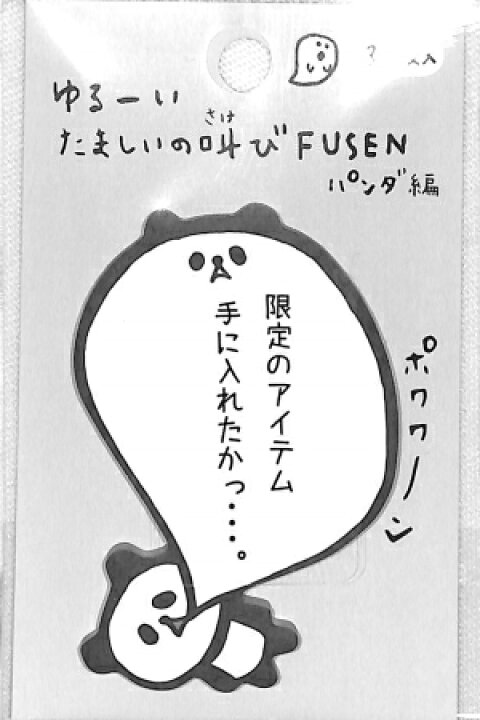 ゆるーい
たましいの叫びFUSEN
さけ
パンダ編
限定のアイテム
手に入れたかっ・・・・。
ポワワーン